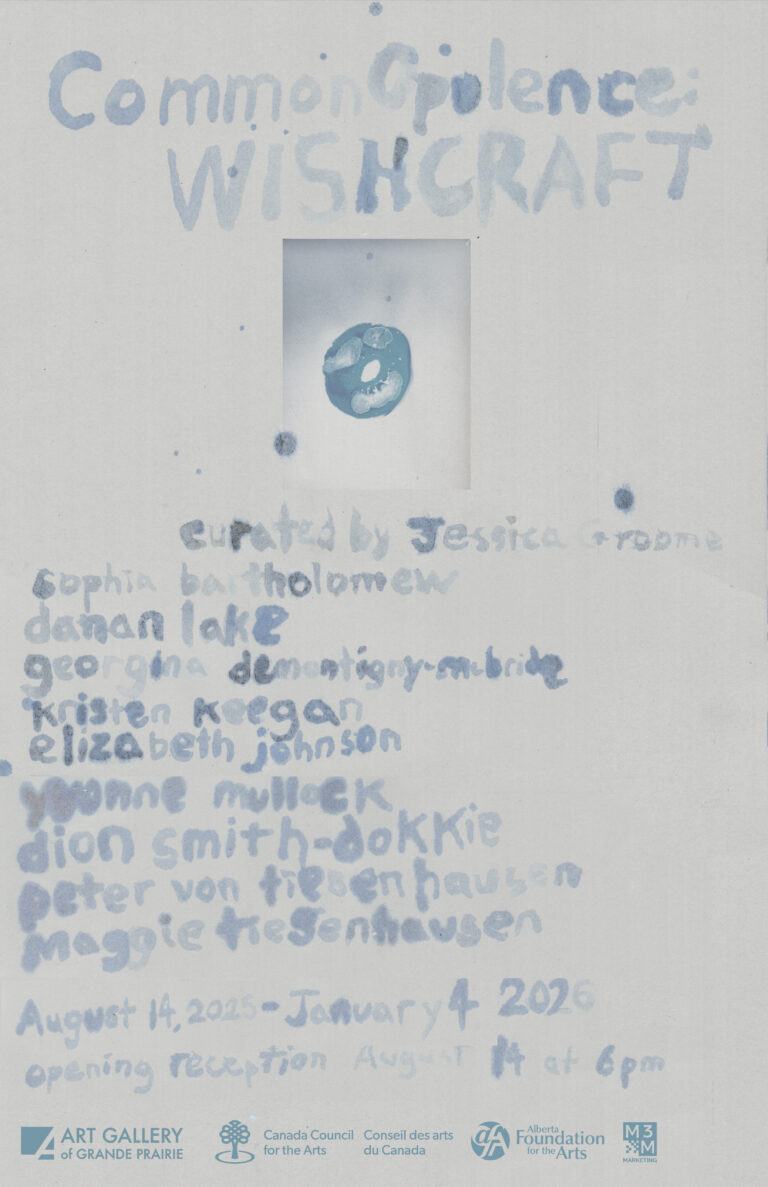 Common Opulence:
WISHCRAFT
curated by Jessica Groome
sophia bartholomew
danan lake
georgina demontigny-mcbride
kristen keegan
elizabeth johnson
yvonne mullock
dion smith-dokkie
peter von tiesenhausen
maggie tiesenhausen
August 14, 2025 - January 4 2026
opening reception August 14 at 6pm
ART GALLERY
of GRANDE PRAIRIE
Canada Council
for the Arts
Conseil des arts
du Canada
Alberta
Foundation
for the Arts
M3M
MARKETING